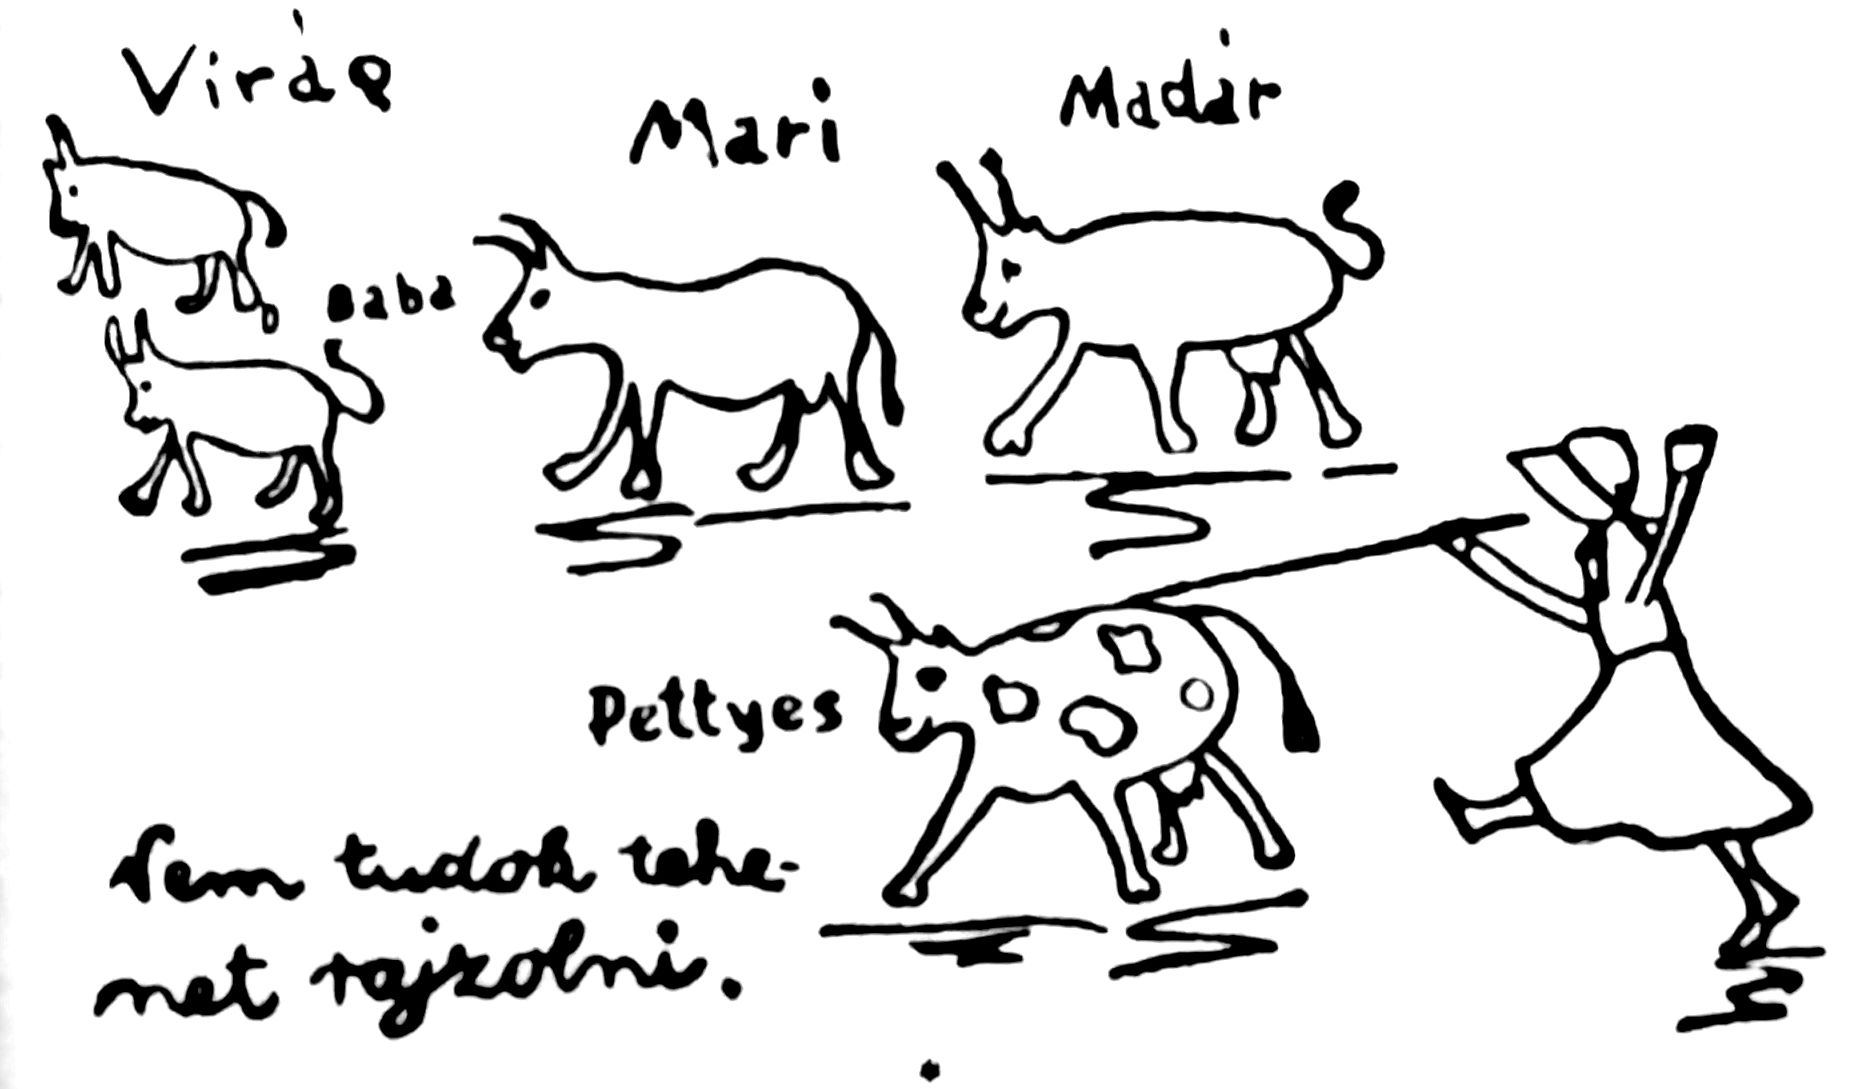 Virág
Mari
Madár
Baba
Pettyes
Nem tudok tehe-
net rajzolni.